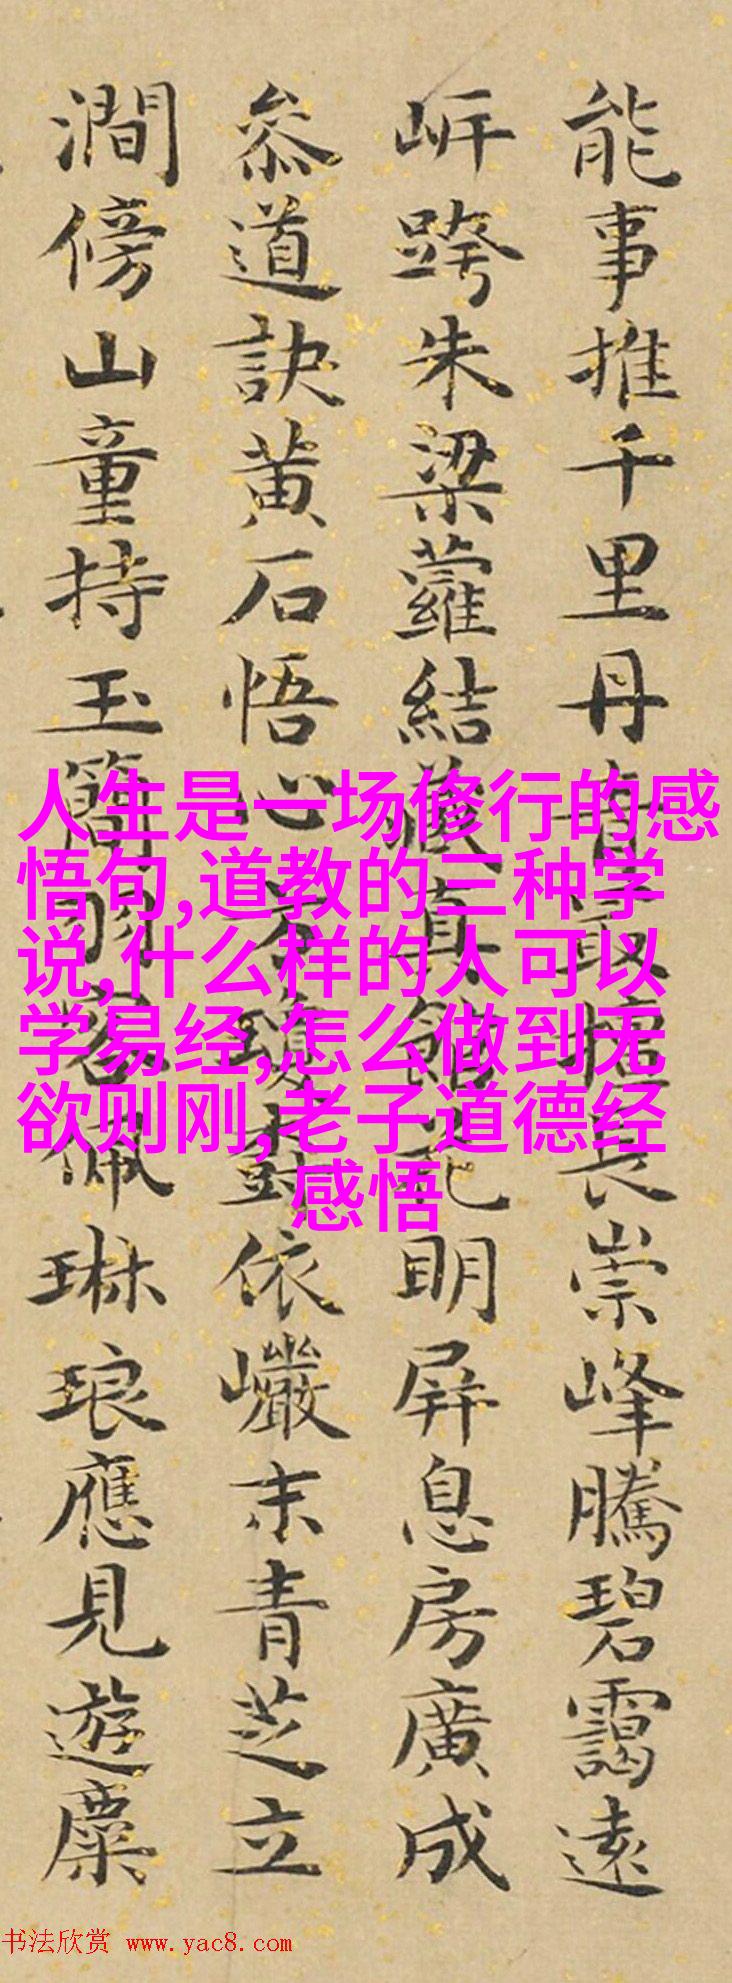 能事推千里丹青最擅長崇峰騰碧靄遠
岍跨朱梁蘿結藏真館花明屏息房廣成
叅道訣黄石悟心方瓊樹依巗末青芝立
澗傍山童持玉簡羽客佩琳琅應見遊麋
人生是一场修行的感
悟句,道教的三种学
说,什么样的人可以
学易经,怎么做到无
欲则刚,老子道德经
感悟
书法欣赏 www.yac8.com